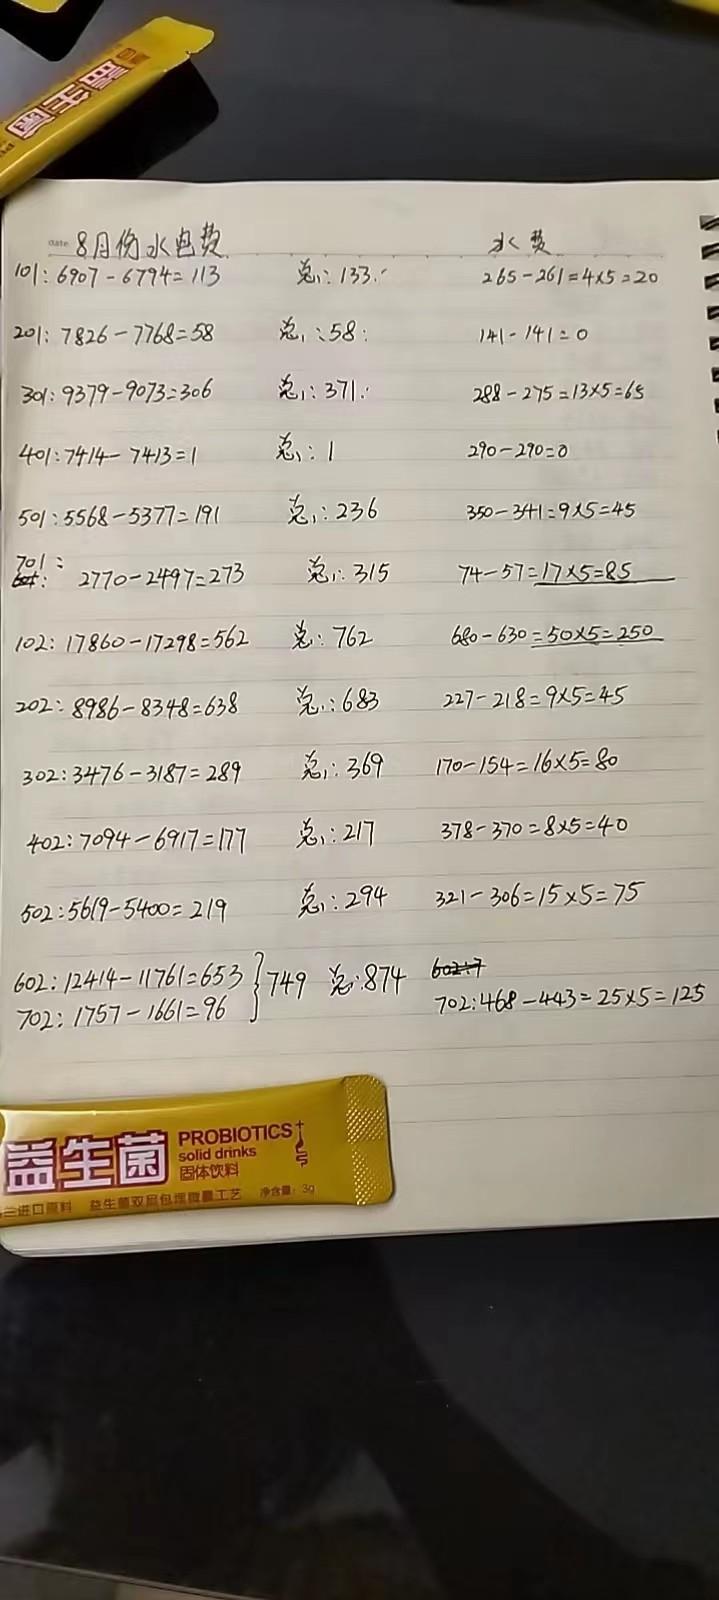 益生菌
date 8月份水电费 水费
101:6907-6794=113 总:133. 265-261=4×5=20
201:7826-7768=58 总:58: 141-141=0
301:9379-9073=306 总:371. 288-275=13×5=65
401:7414-7413=1 总:1 290-290=0
501:5568-5377=191 总:236 350-341=9×5=45
701:
2770-2497=273 总:315 74-57=17×5=85
102:17860-17298=562 总:762 680-630=50×5=250
202:8986-8348=638 总:683 227-218=9×5=45
302:3476-3187=289 总:369 170-154=16×5=80
402:7094-6917=177 总:217 378-370=8×5=40
502:5619-5400=219 总:294 321-306=15×5=75
602:12414-11761=653 }749 总:874 602:7
702:1757-1661=96 702:468-443=25×5=125
益生菌 PROBIOTICS
solid drinks
固体饮料
进口原料 益生菌双层包埋微量工艺 净含量:3g